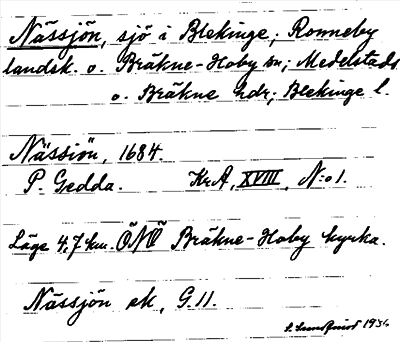 Nässjön, sjö i Blekinge; Ronneby
landsk. o. Bräkne-Hoby sn; Medelstads
o. Bräkne hdr; Blekinge l.
Nässiön, 1684.
P. Gedda. KrA, XVIII, N:o 1.
Läge 4,7 km. ÖNÖ Bräkne-Hoby kyrka.
Nässjön ek, G.11.
S. Lundqvist 1936